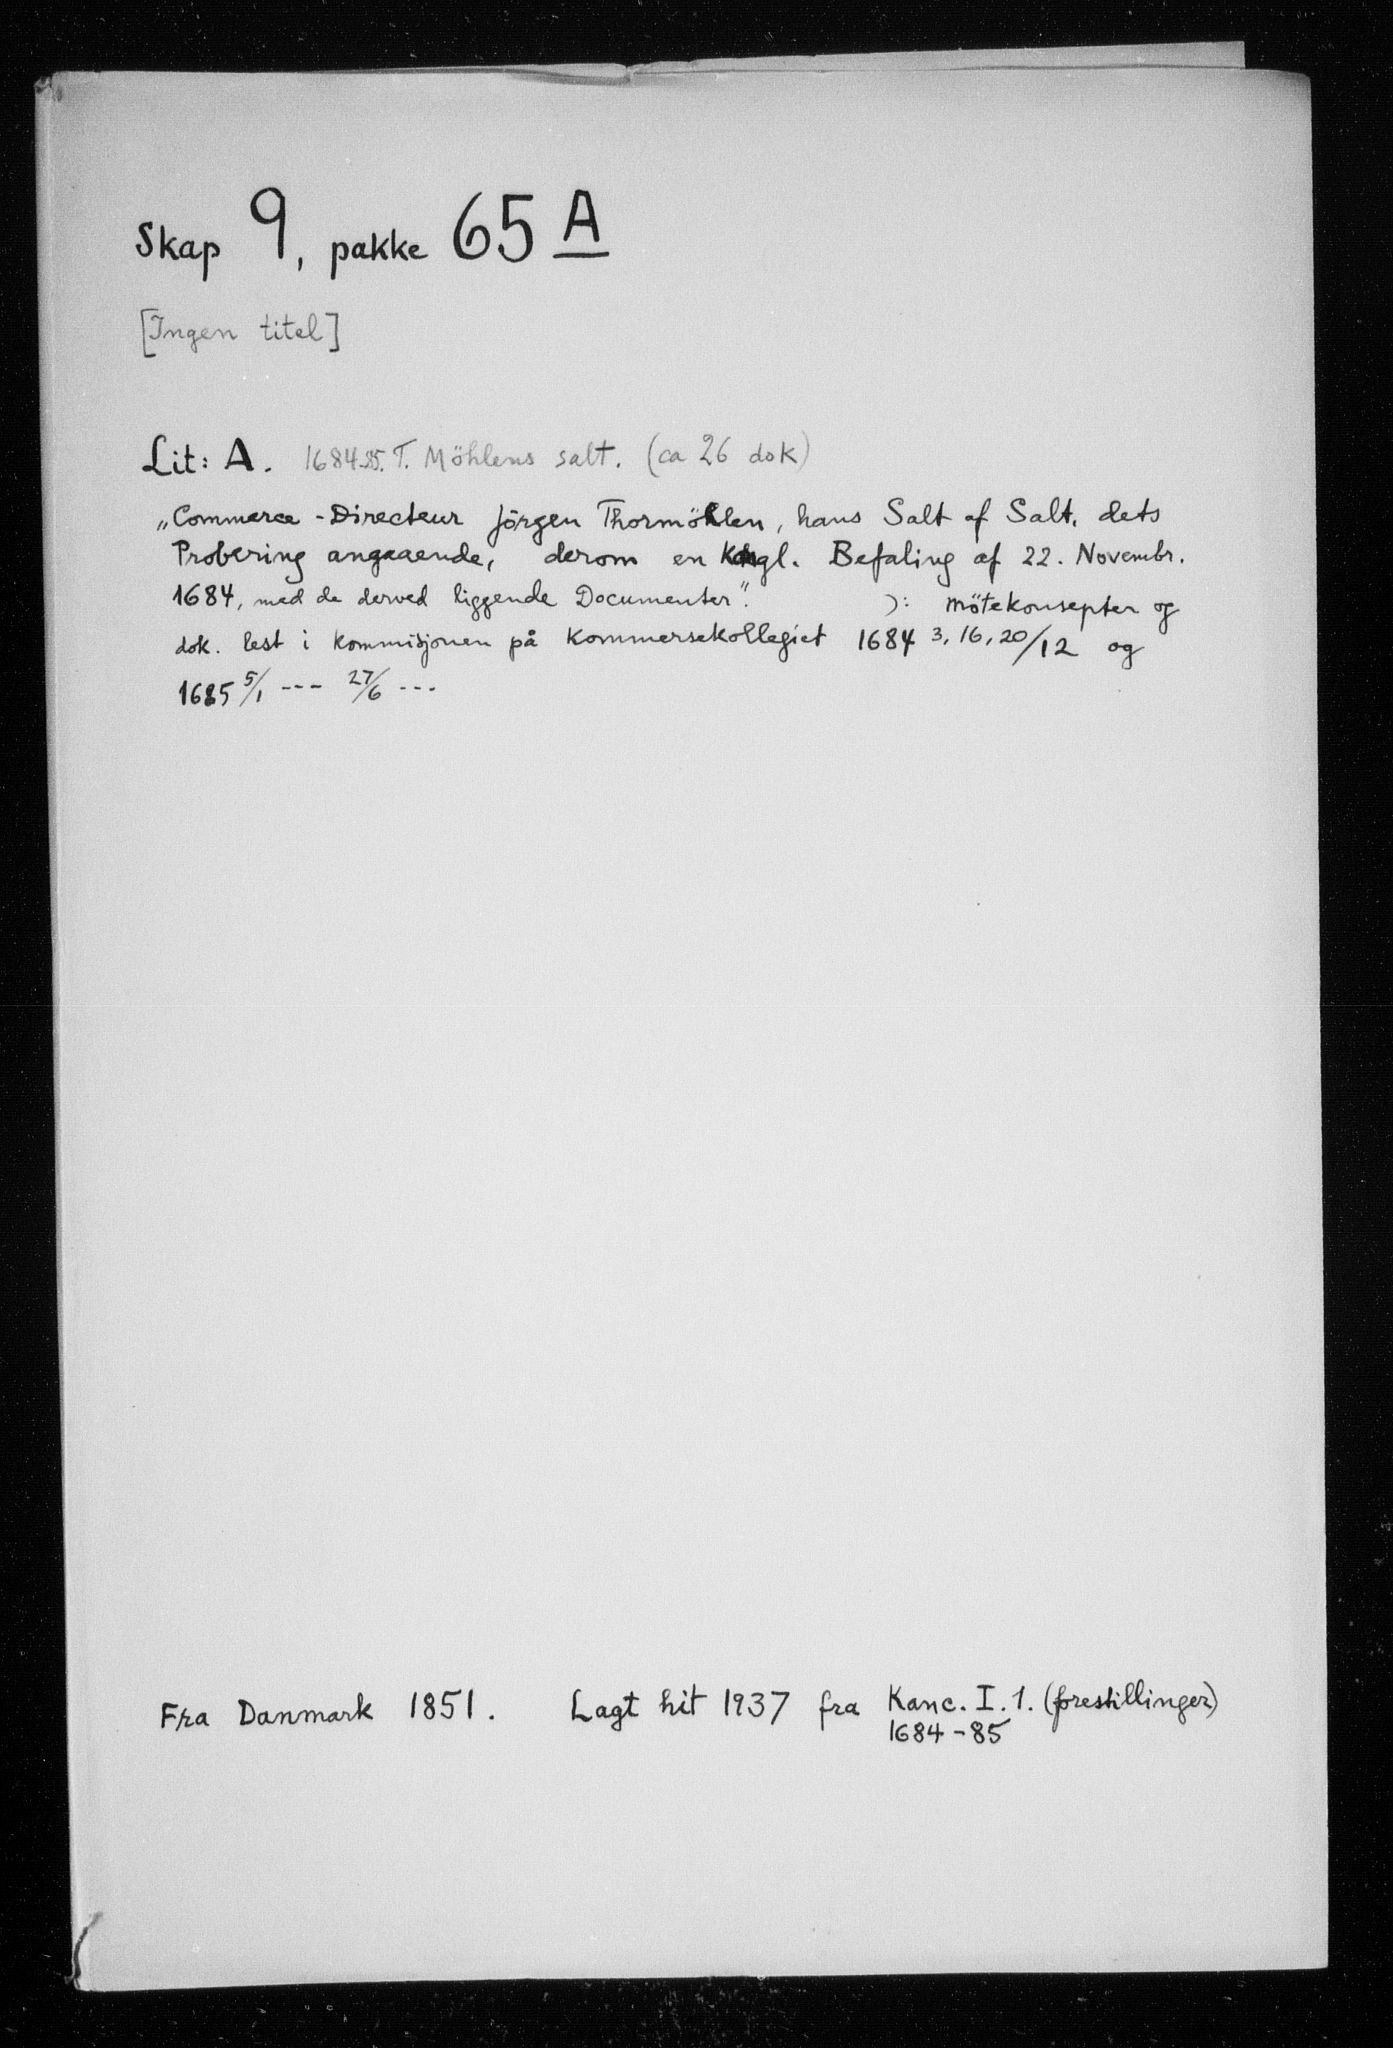 Skap 9, pakke 65 A
[Ingen titel]
Lit: A. 1684-85. T. Möhlens salt. (ca 26 dok)
„Commerce-Directeur Jörgen Thormöhlen, hans Salt af Salt, dets
Probering angaaende, derom en Kongl. Befaling af 22. Novembr.
1684, med de derved liggende Documenter". ): mötekonsepter og
dok. lest i kommisjonen på Kommersekollegiet 1684 3, 16, 20/12 og
1685 5/1 --- 27/6 ---
Fra Danmark 1851. Lagt hit 1937 fra Kanc. I. 1. (forestillinger)
1684-85